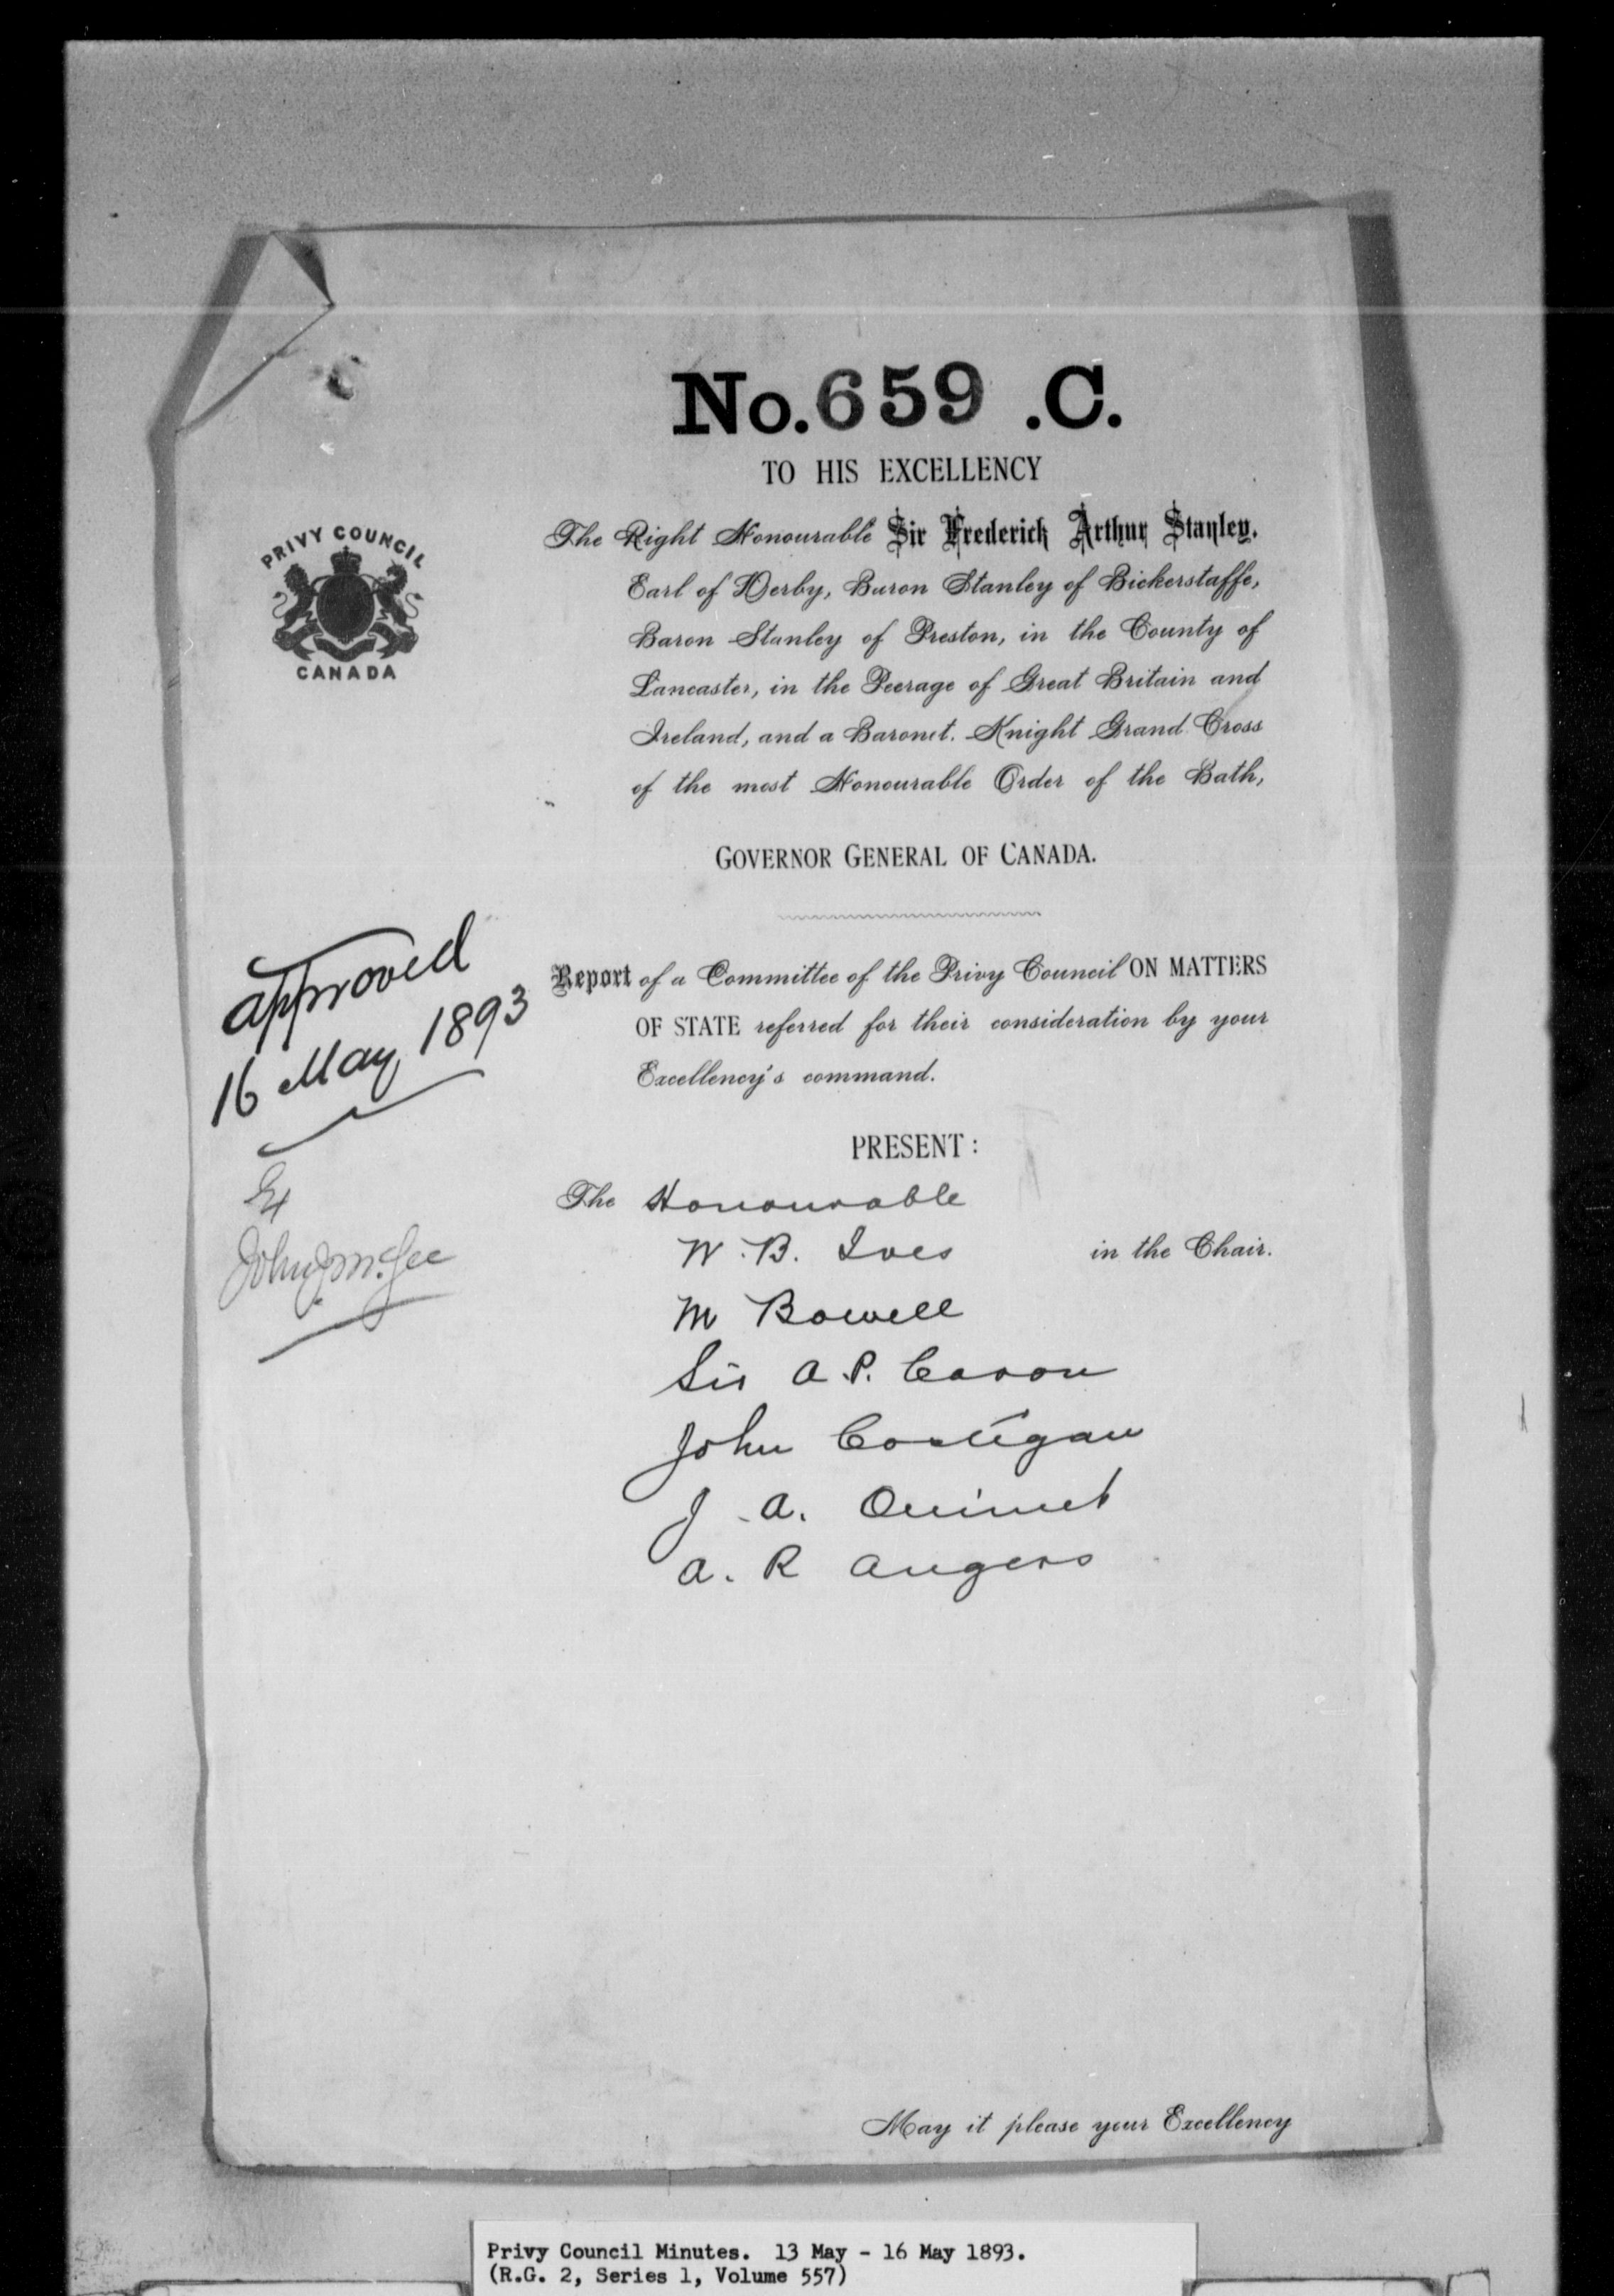 No. 659 .C.
TO HIS EXCELLENCY
PRIVY COUNCIL
CANADA
The Right Honourable Sir Frederick Arthur Stanley.
Earl of Derby, Baron Stanley of Bickerstaffe,
Baron Stanley of Preston, in the County of
Lancaster, in the Peerage of Great Britain and
Ireland, and a Baronet. Knight Grand Cross
of the most Honourable Order of the Bath,
GOVERNOR GENERAL OF CANADA.
approved
16 May 1893
John J McGee
Report of a Committee of the Privy Council ON MATTERS
OF STATE referred for their consideration by your
Excellency's command.
PRESENT:
The Honourable
W. B. Ives in the Chair.
M Bowell
Sir A.P. Caron
John Costigan
J. A. Ouimet
A. R Angers
May it please your Excellency
Privy Council Minutes. 13 May - 16 May 1893.
(R.G. 2, Series 1, Volume 557)